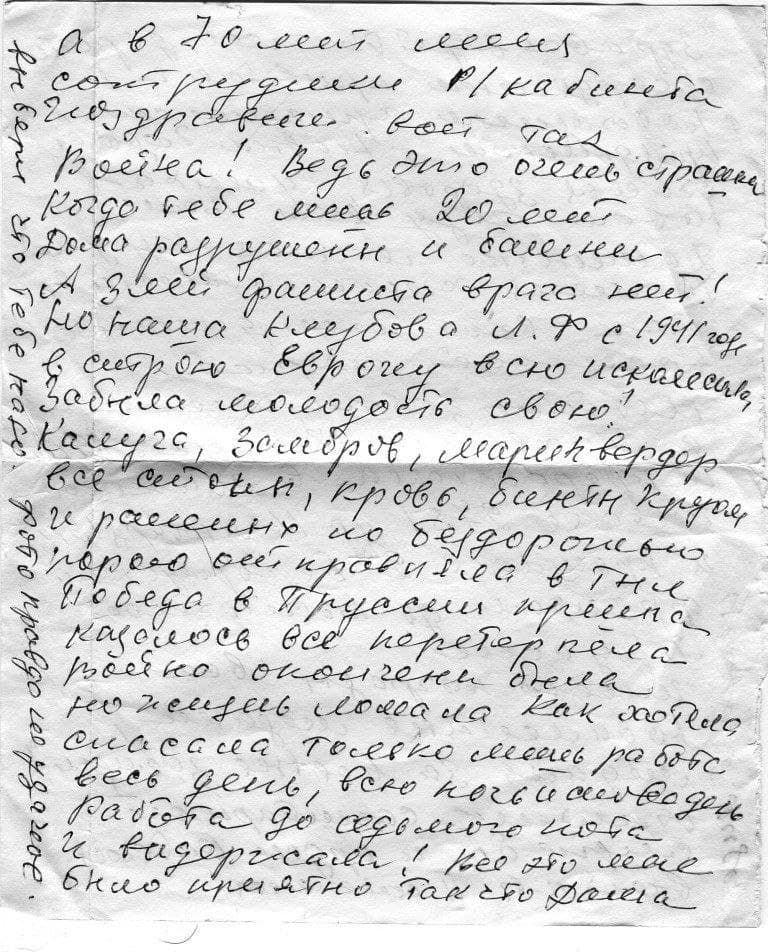 а в 70 лет меня
сотрудники Р/кабинта
поздравили. Вот так
Война! Ведь это очень страшна
Когда тебе лишь 20 лет
Дома разрушенн и башни
А злей фашиста врага нет!
Но наша Клубова Л.Ф с 1941 году
в строю Европу всю исколесила,
Забыла молодость свою!
Калуга, Замбров, Мариенвердор
все стонн, кровь, бинтн кругом
и раненнх по бездорожью
порою отправляла в Тнл
Победа в Пруссии пришла
казалось все перетерпела
война окончена бнла
но жизнь ломала как хотела
спасала только лишь работа
весь день, всю ночь и снова день
Работа до седьмого пота
И выдержала! Все это мне
бнло приятно так что Даша
вндери это тебе надо. фото правда не удачное.